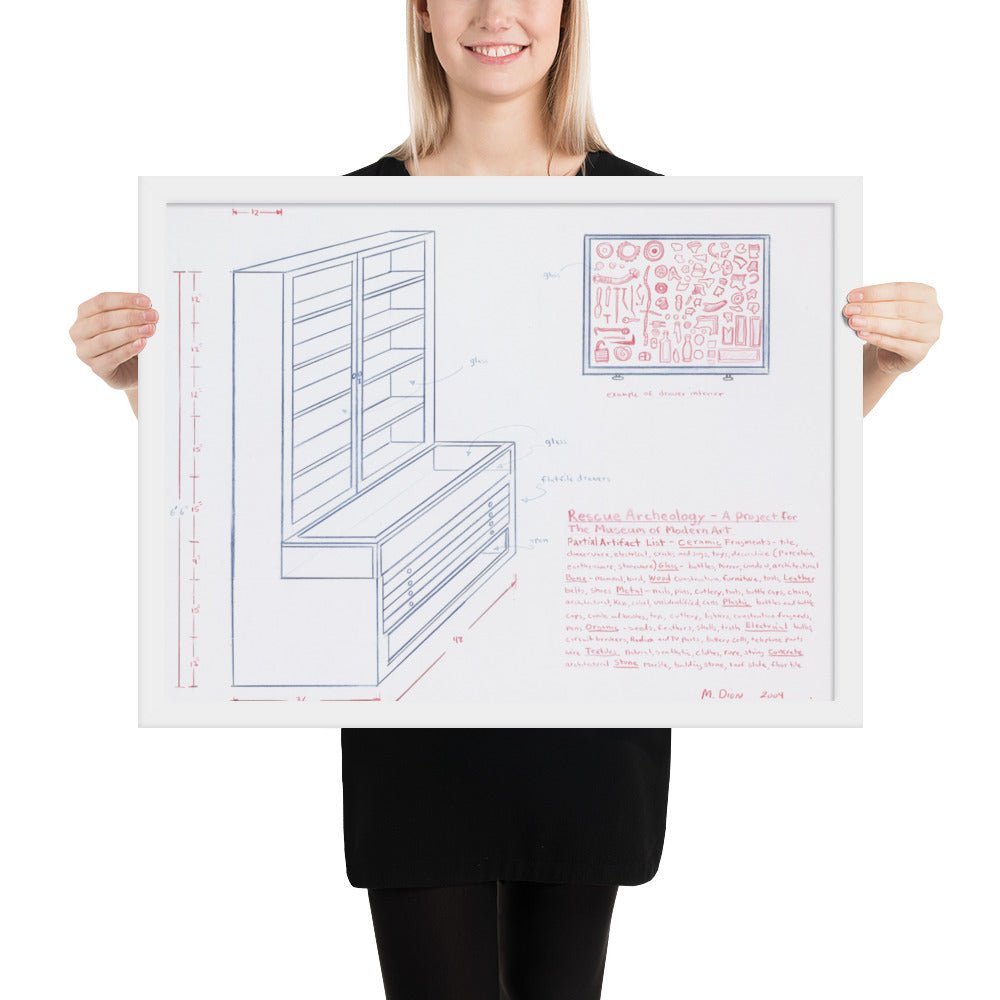 12
glass
12"
12"
12"
15"
15"
6'6"
glass
example of drawer interior
glass
glass
flat file drawers
open
4"
15"
12"
48
36
Rescue Archeology - A Project for
The Museum of Modern Art
Partial Artifact List - Ceramic Fragments - tile,
dinnerware, electrical, crocks and jugs, toys, decorative (Porcelain,
earthenware, stoneware) Glass - bottles, mirror, window, architectural
Bone - mammal, bird, Wood construction, furniture, tools, Leather
belts, shoes Metal - nails, pins, cutlery, tools, bottle caps, chain,
architectural, keys, unidentified, cans Plastic bottles and bottle
caps, combs and brushes, toys, cutlery, construction fragments,
pens Organic - seeds, feathers, shells, teeth Electrical bulbs,
circuit breakers, Radio and TV parts, battery cells, telephone parts
wire Textiles natural, synthetic, clothes, rope, string Concrete
architectural Stone marble, building stone, roof slate, floor tile
M. Dion 2004